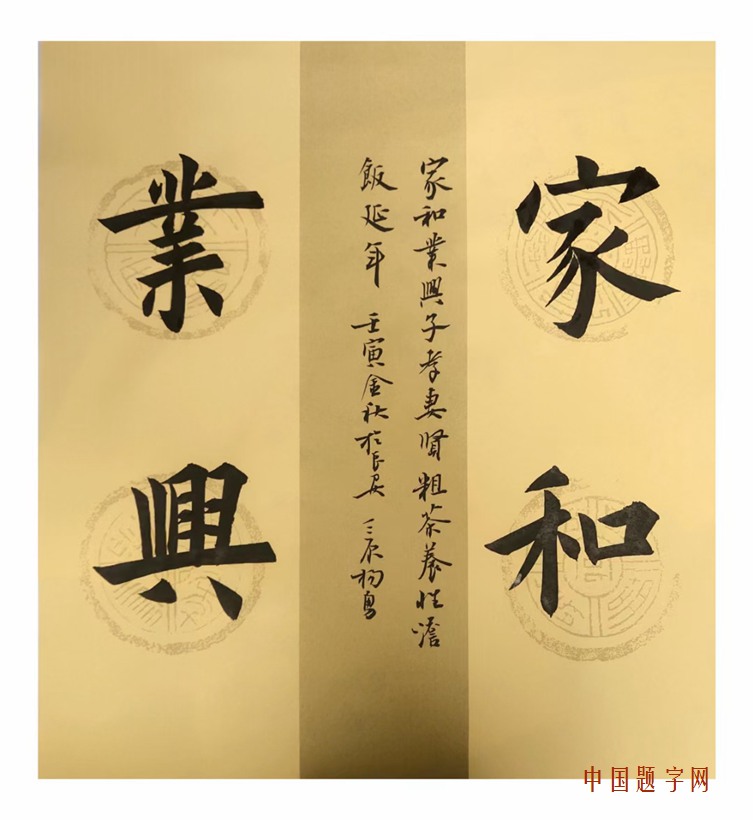 家和
業興
家和業興子孝妻賢粗茶養性澹
飯延年 壬寅金秋於長安
中国题字网